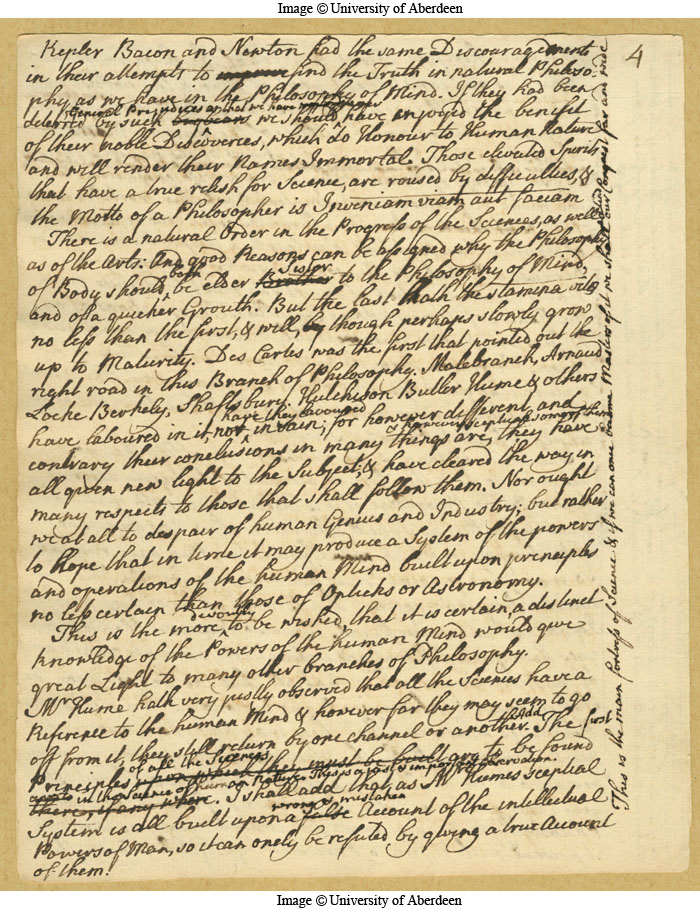 Image © University of Aberdeen
4
Kepler Bacon and Newton had the same Discouragements
in their attempts to improve find the Truth in natural Philoso-
phy, as we have in the Philosophy of Mind. If they had been
General Prejudices
deterred by such bugbears we should have enjoyed the benefit
of their noble Discoveries, which do Honour to Human Nature
and will render their Names Immortal. Those elevated Spirits
that have a true relish for Science, are roused by difficulties, &
the Motto of a Philosopher is Inveniam viam aut faciam
There is a natural Order in the Progress of the Sciences, as well
as of the Arts: And good Reasons can be assigned why the Philosophy
both Sister
of Body should be elder Brother to the Philosophy of Mind,
and of a quicker Grouth. But the last hath the stamina vitæ
no less than the first, & will, by though perhaps slowly grow
up to Maturity. Des Cartes was the first that pointed out the
right road in this Branch of Philosophy. Malebranch, Arnaud
Locke Berkely, Shaftsbury. Hutchison Butler Hume & others
have they laboured
have laboured in it, nor in vain; for however different, and
or however sceptical some of them
contrary their conclusions in many things are, they have
all given new light to the Subject; & have cleared the way in
many respects to those that shall follow them. Nor ought
we at all to despair of human Genius and Industry; but rather
to hope that in time it may produce a System of the powers
and operations of the human Mind built upon principles
no less certain than those of Opticks or Astronomy.
devoutly
This is the more to be wished, that it is certain, a distinct
knowledge of the Powers of the human Mind would give
great Light to many other branches of Philosophy.
Mr Hume hath very justly observed that all the Sciences have a
Reference to the human Mind & however far they may seem to go
off from it, they still return by one channel or another. The first
of all the Sciences
Principles upon which they must be built are to be found
in the science of human Nature. This is a just & important observation.
there, if any where. I shall add that as Mr Humes sceptical
wrong & mistaken
System is all built upon a false Account of the intellectual
Powers of Man, so it can onely be refuted by giving a true Account
of them.
This is the main fortress of Science & if we can once become Masters of it we should extend our Conquest far and wide
Image © University of Aberdeen